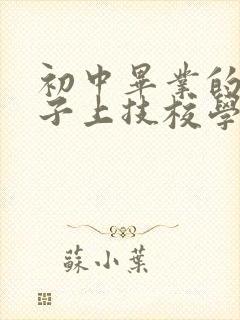 初中畢業的
子上技校學
蘇小葉